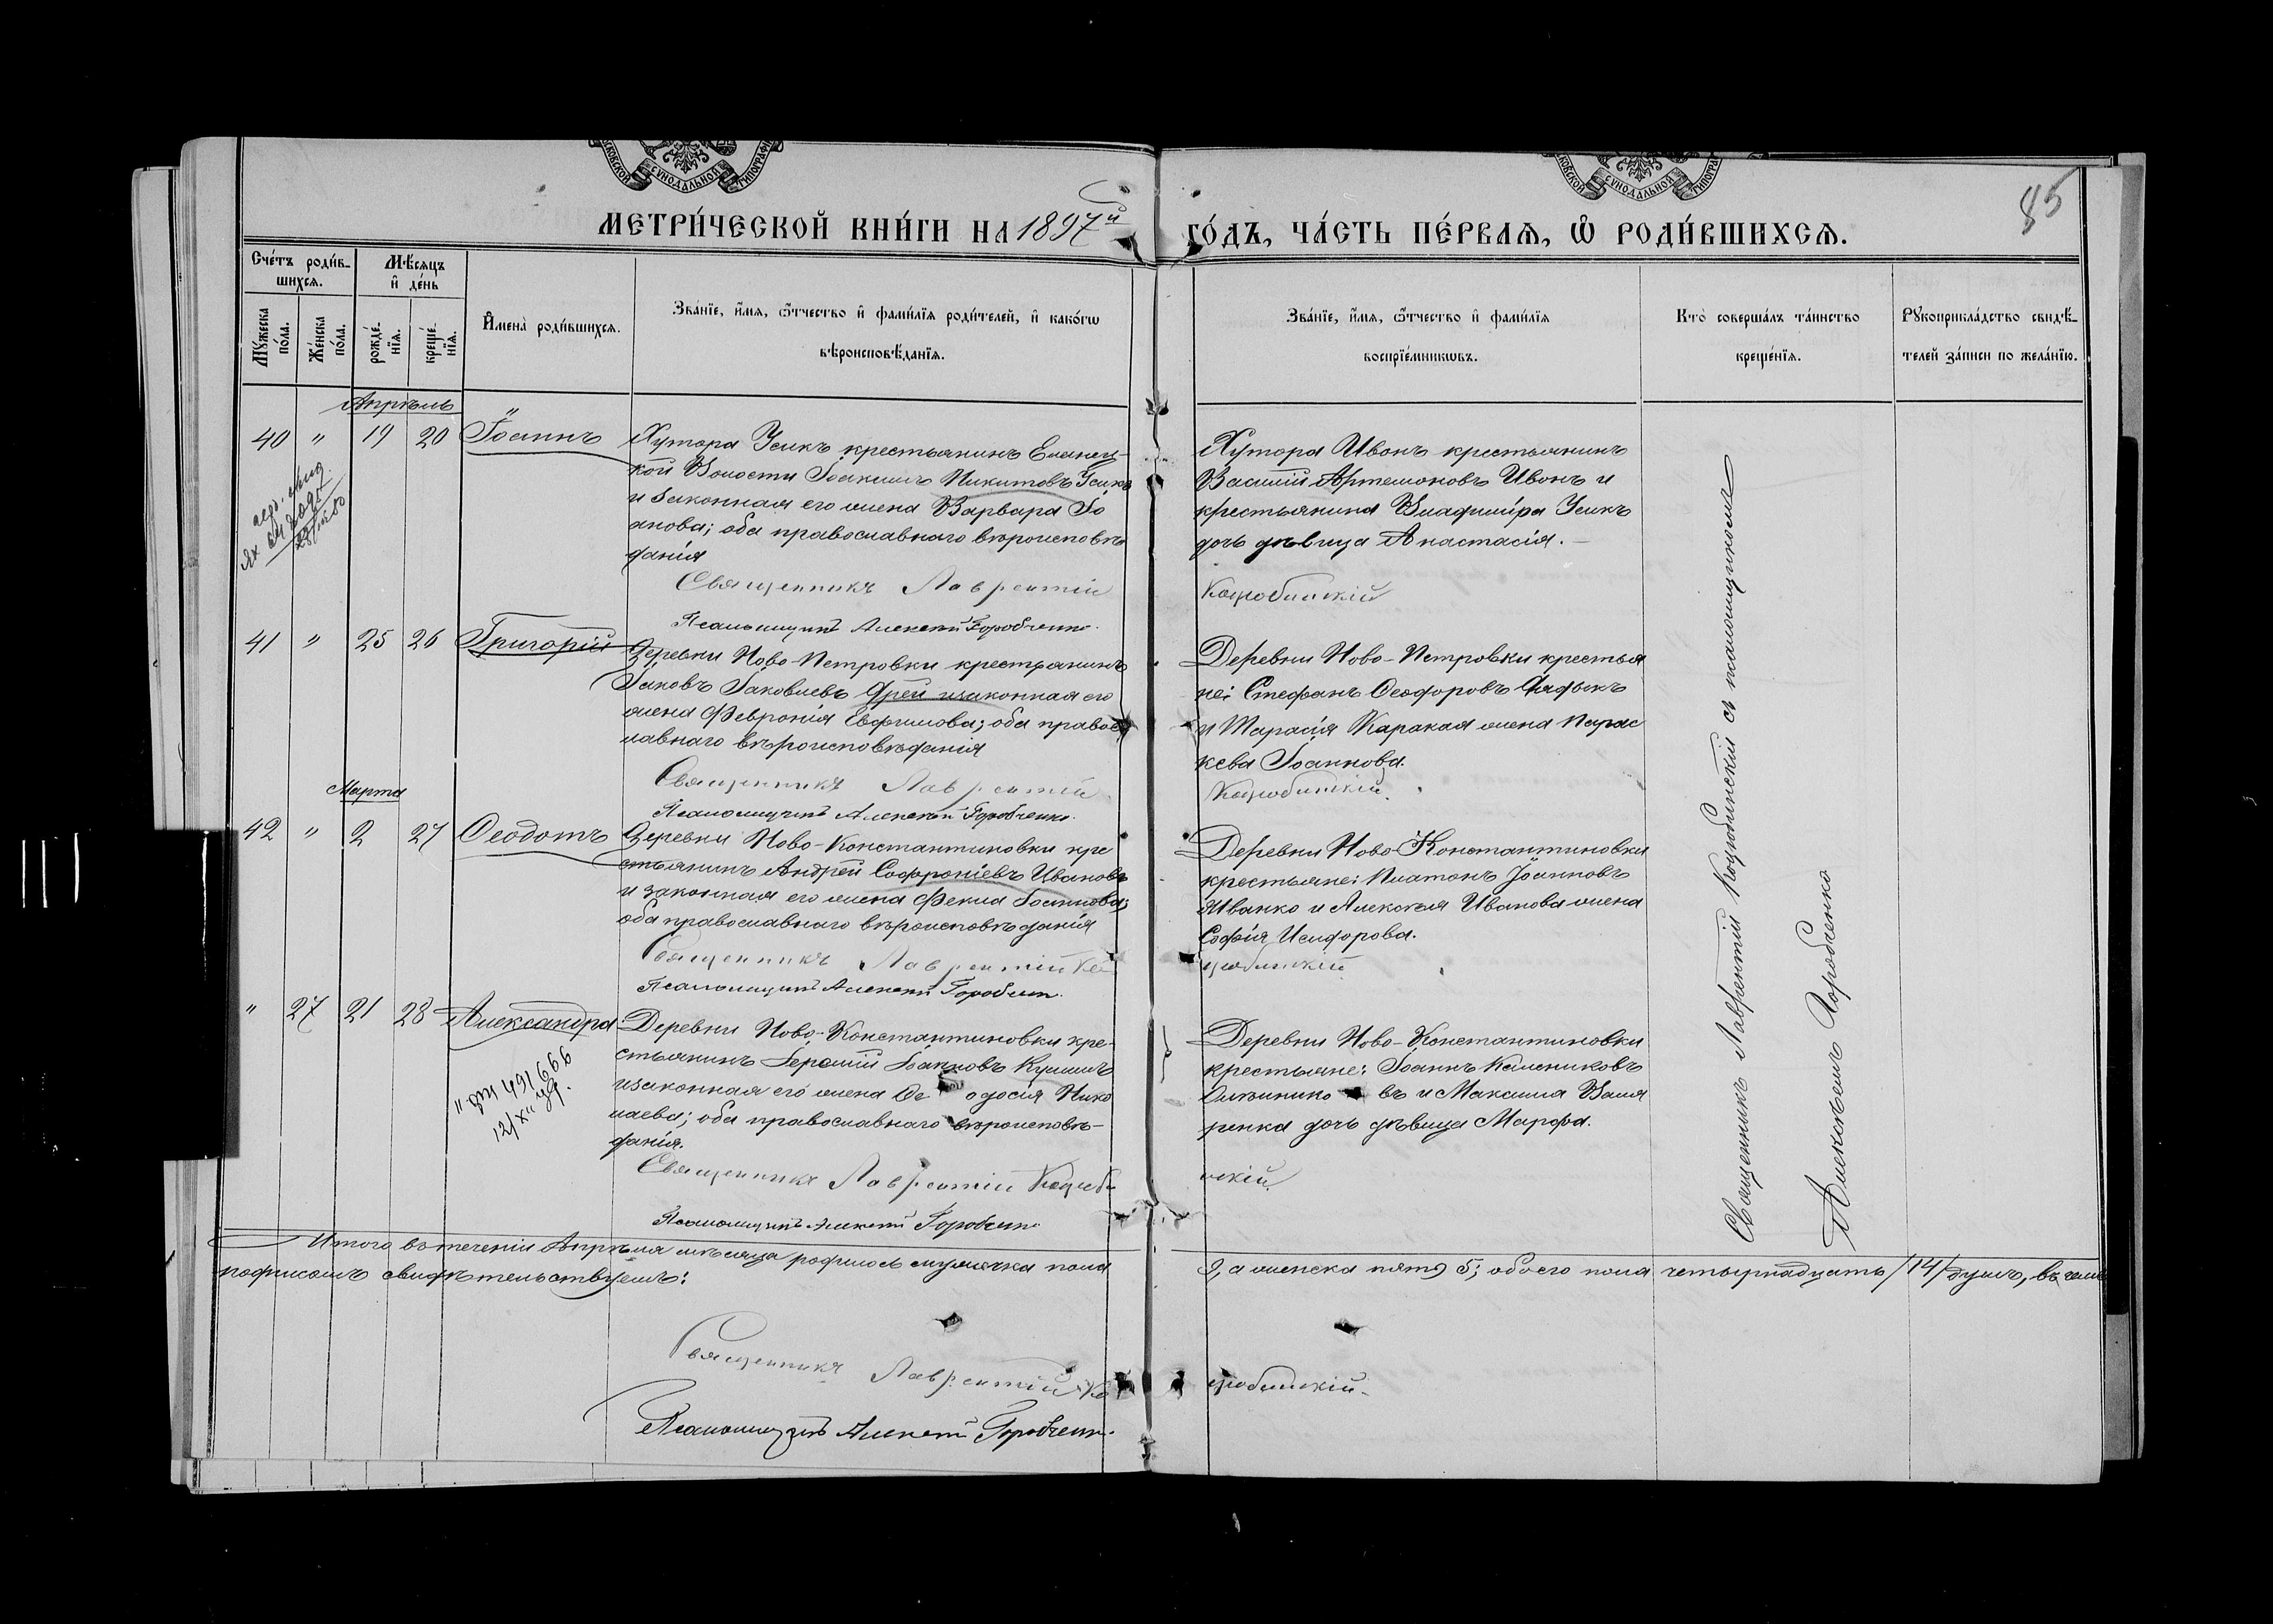 МЕТРИ́ЧЕСКОЙ КНИ́ГИ НА 1897й ГО́ДЪ, ЧА́СТЬ ПЕ́РВАЯ, Ѡ РОДИ́ВШИХСЯ.
85
Сче́тъ роди́в-
шихся.
Мѣ́сяцъ
и де́нь
Му́жеска
по́ла.
Же́нска
по́ла.
рожде́-
нїя.
креще́-
нїя.
Имена̀ роди́вшихся.
Зва́нїе, и́мя, ѻ́тчество и фами́лїя роди́телей, и како́гѡ
вѣроисповѣ́данїя.
Зва́нїе, и́мя, ѻ́тчество и фами́лїя
воспрїе́мникѡвъ.
Кто̀ соверша́лъ та́инство
креще́нїя.
Рꙋкоприкла́дство свидѣ́-
телей за́писи по жела́нїю.
Апрѣль
40 " 19 20 Іоаннъ
Хутора Усикъ крестьянинъ Еланец-
кой Волости Іоакимъ Никитовъ Усикъ
и законная его жена Варвара Іо
анова; оба православнаго вѣроисповѣ
данія
Священникъ Лаврентій
Псаломщикъ Алексѣй Горобченко.
Хутора Ивонъ крестьянинъ
Василій Артемоновъ Ивонъ и
крестьянина Владиміра Усикъ
дочь дѣвица Анастасія. –
Коцюбинскій
41 " 25 26 Григорій
Деревни Ново-Петровки крестьянинъ
Іаковъ Іаковлевъ и законная его
жена Февронія Евфимова; оба правос
лавнаго вѣроисповѣданія
Священникъ Лаврентій
Псаломщикъ Алексѣй Горобченко.
Деревни Ново-Петровки крестья
не: Стефанъ Ѳеодоровъ
и Тарасія Каракая жена Парас
кева Іоаннова.
Коцюбинскій.
Марта
42 " 2 27 Ѳеодотъ
Деревни Ново-Константиновки кре
стьянинъ Андрей Софроніевъ Ивановъ
и законная его жена Фекла Іоаннова;
оба православнаго вѣроисповѣданія
Священникъ Лаврентій Ко
Псаломщикъ Алексѣй Горобченк.
Деревни Ново-Константиновки
крестьяне: Платонъ Іоанновъ
Иванко и Алексѣя Иванова жена
Софія Исидорова.
цюбинскій
" 27 21 28 Александра
491666
12/X
Деревни Ново-Константиновки кре-
стьянинъ Іеремій Іоанновъ
и законная его жена Ѳе одосія Нико
лаева; оба православнаго вѣроисповѣ-
данія.
Священникъ Лаврентій Коцюби
Псаломщикъ Алексѣй Горобченк.
Деревни Ново-Константиновки
крестьяне: Іоаннъ
въ и Максима Валя
ренка дочь дѣвица Марфа.
нскій.
Священникъ Лаврентій Коцюбинскій съ псаломщикомъ
Алексѣемъ Горобченко
Итого въ теченіи Апрѣля мѣсяца родилось мужеска пола 9, а женска пять 5; обоего пола четырнадцать /14/ душъ, въ чемъ
подписомъ свидѣтельствуемъ:
Священникъ Лаврентій Ко цюбинскій.
Псаломщикъ Алексѣй Горобченк.